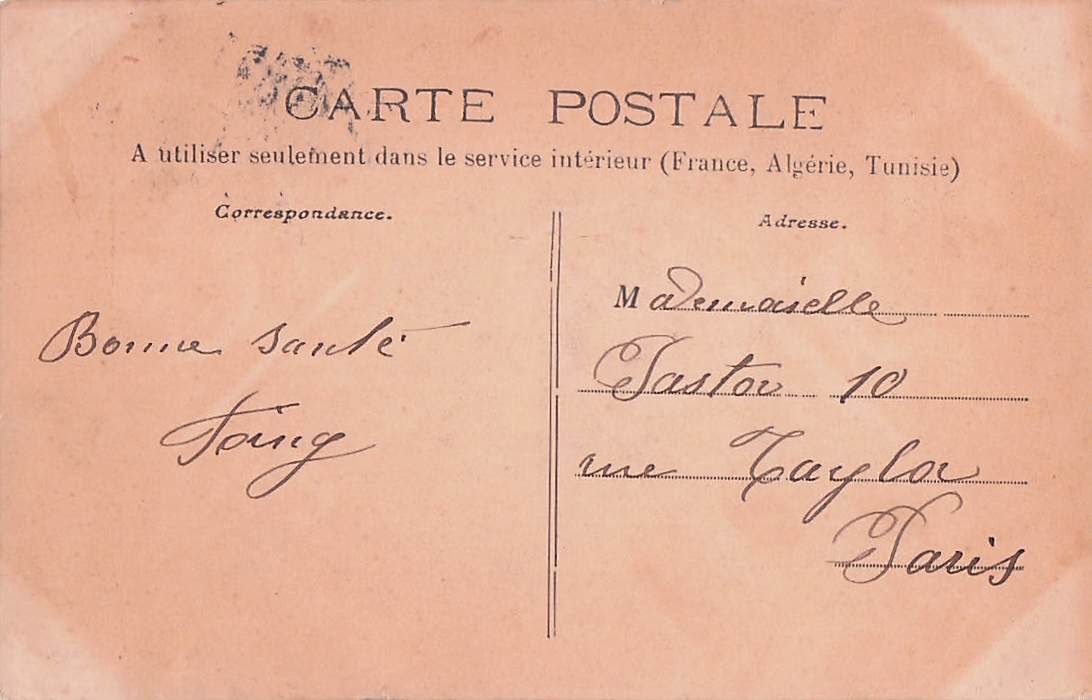 CARTE POSTALE
A utiliser seulement dans le service intérieur (France, Algérie, Tunisie)
Correspondance.
Bonne santé
Adresse.
Mademoiselle
Pastor 10
rue Taylor
Paris